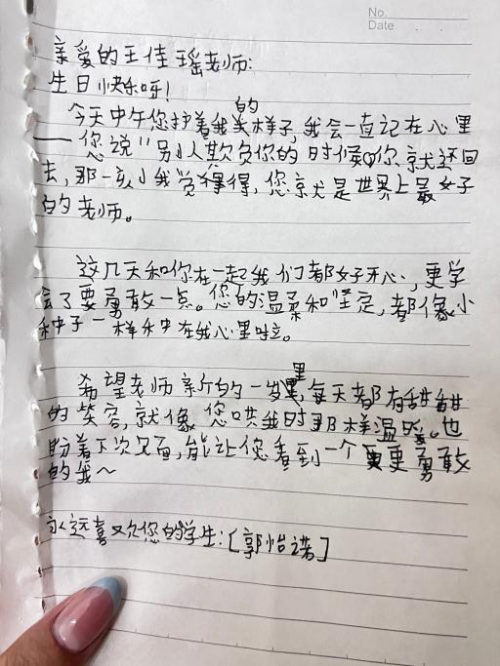 No.
Date
亲爱的王佳瑶老师:
生日快乐呀!
今天中午您护着我的样子,我会一直记在心里
——您说"别人欺负你的时候你就还回
去,那一刻我觉得,您就是世界上最好
的老师。
这几天和你在一起我们都好开心,更学
会了要勇敢一点。您的温柔和坚定,都像小
种子一样种在我心里啦。
希望老师新的一岁里,每天都有甜甜
的笑容,就像您哄我时那样温暖。也
盼着下次见面,能让您看到一个更勇敢
的我~
永远喜欢您的学生:[郭怡诺]